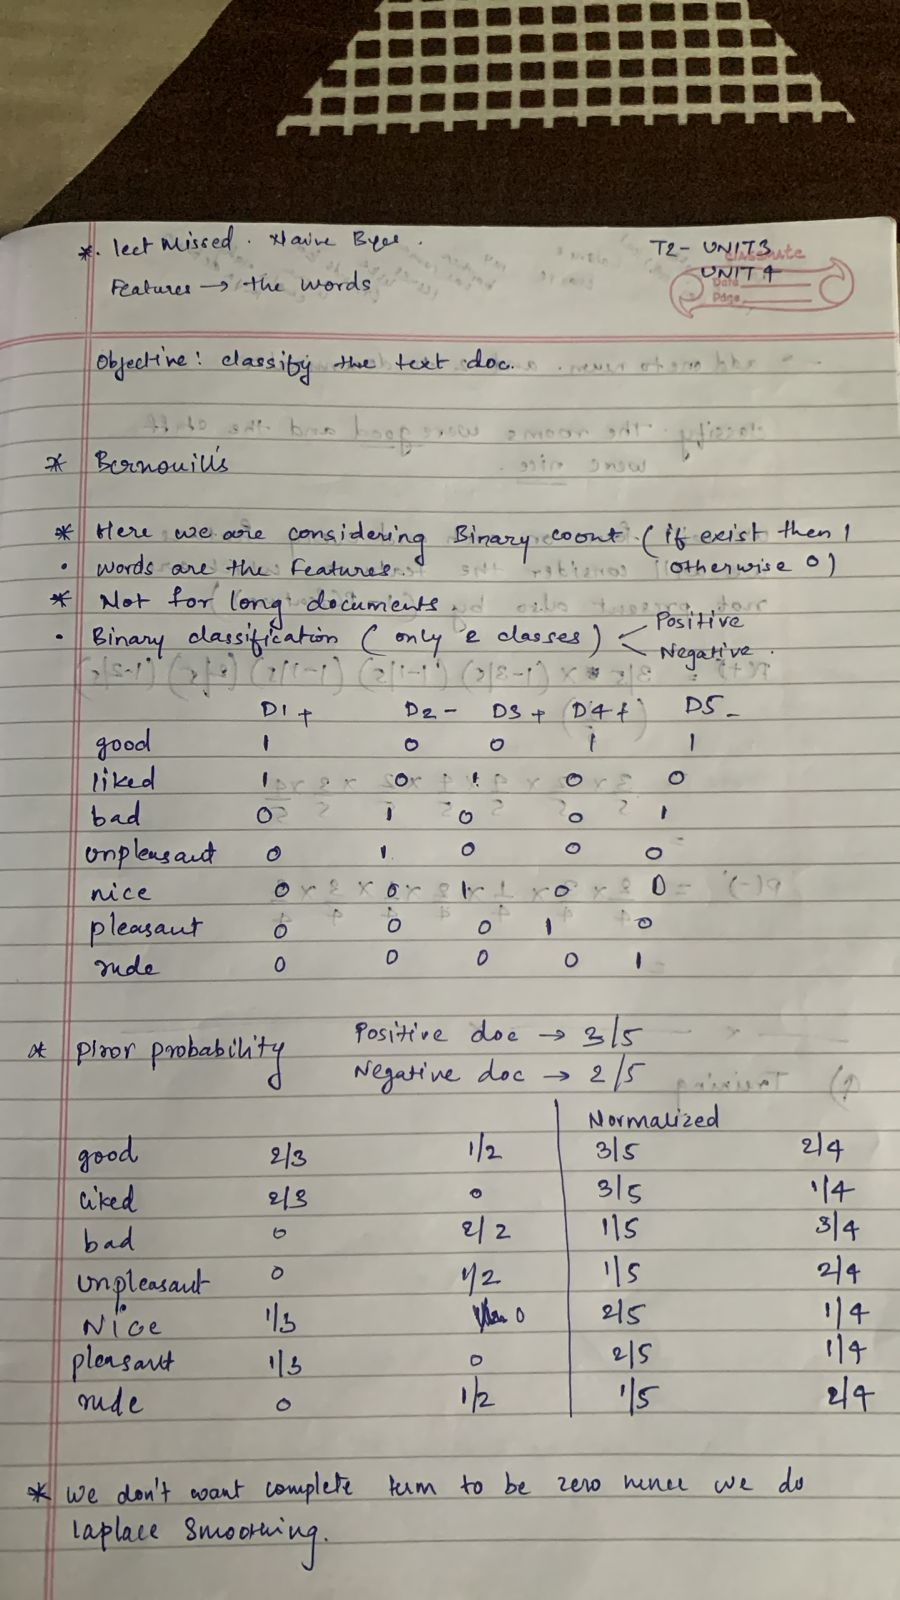 *. lect Missed. Naive Byes.
T2- UNIT3
UNIT 4
classmate
Date
Page
Features → the words
Objective: classify the text doc.
* Bernouill's
* Here we are considering Binary count. (if exist then 1
• words are the Features. otherwise 0)
* Not for long documents.
• Binary classification (only 2 classes) Positive
Negative.
D1 + D2 - D3 + D4 + D5 -
good 1 0 0 1 1
liked 1 0 1 0 0
bad 0 1 0 0 1
unpleasant 0 1 0 0 0
nice 0 0 1 0 0
pleasant 0 0 0 1 0
rude 0 0 0 0 1
* Prior probability Positive doc → 3/5
Negative doc → 2/5
Normalized
good 2/3 1/2 3/5 2/4
liked 2/3 0 3/5 1/4
bad 0 2/2 1/5 3/4
unpleasant 0 1/2 1/5 2/4
Nice 1/3 0 2/5 1/4
pleasant 1/3 0 2/5 1/4
rude 0 1/2 1/5 2/4
* We don't want complete term to be zero hence we do
laplace Smoothing.